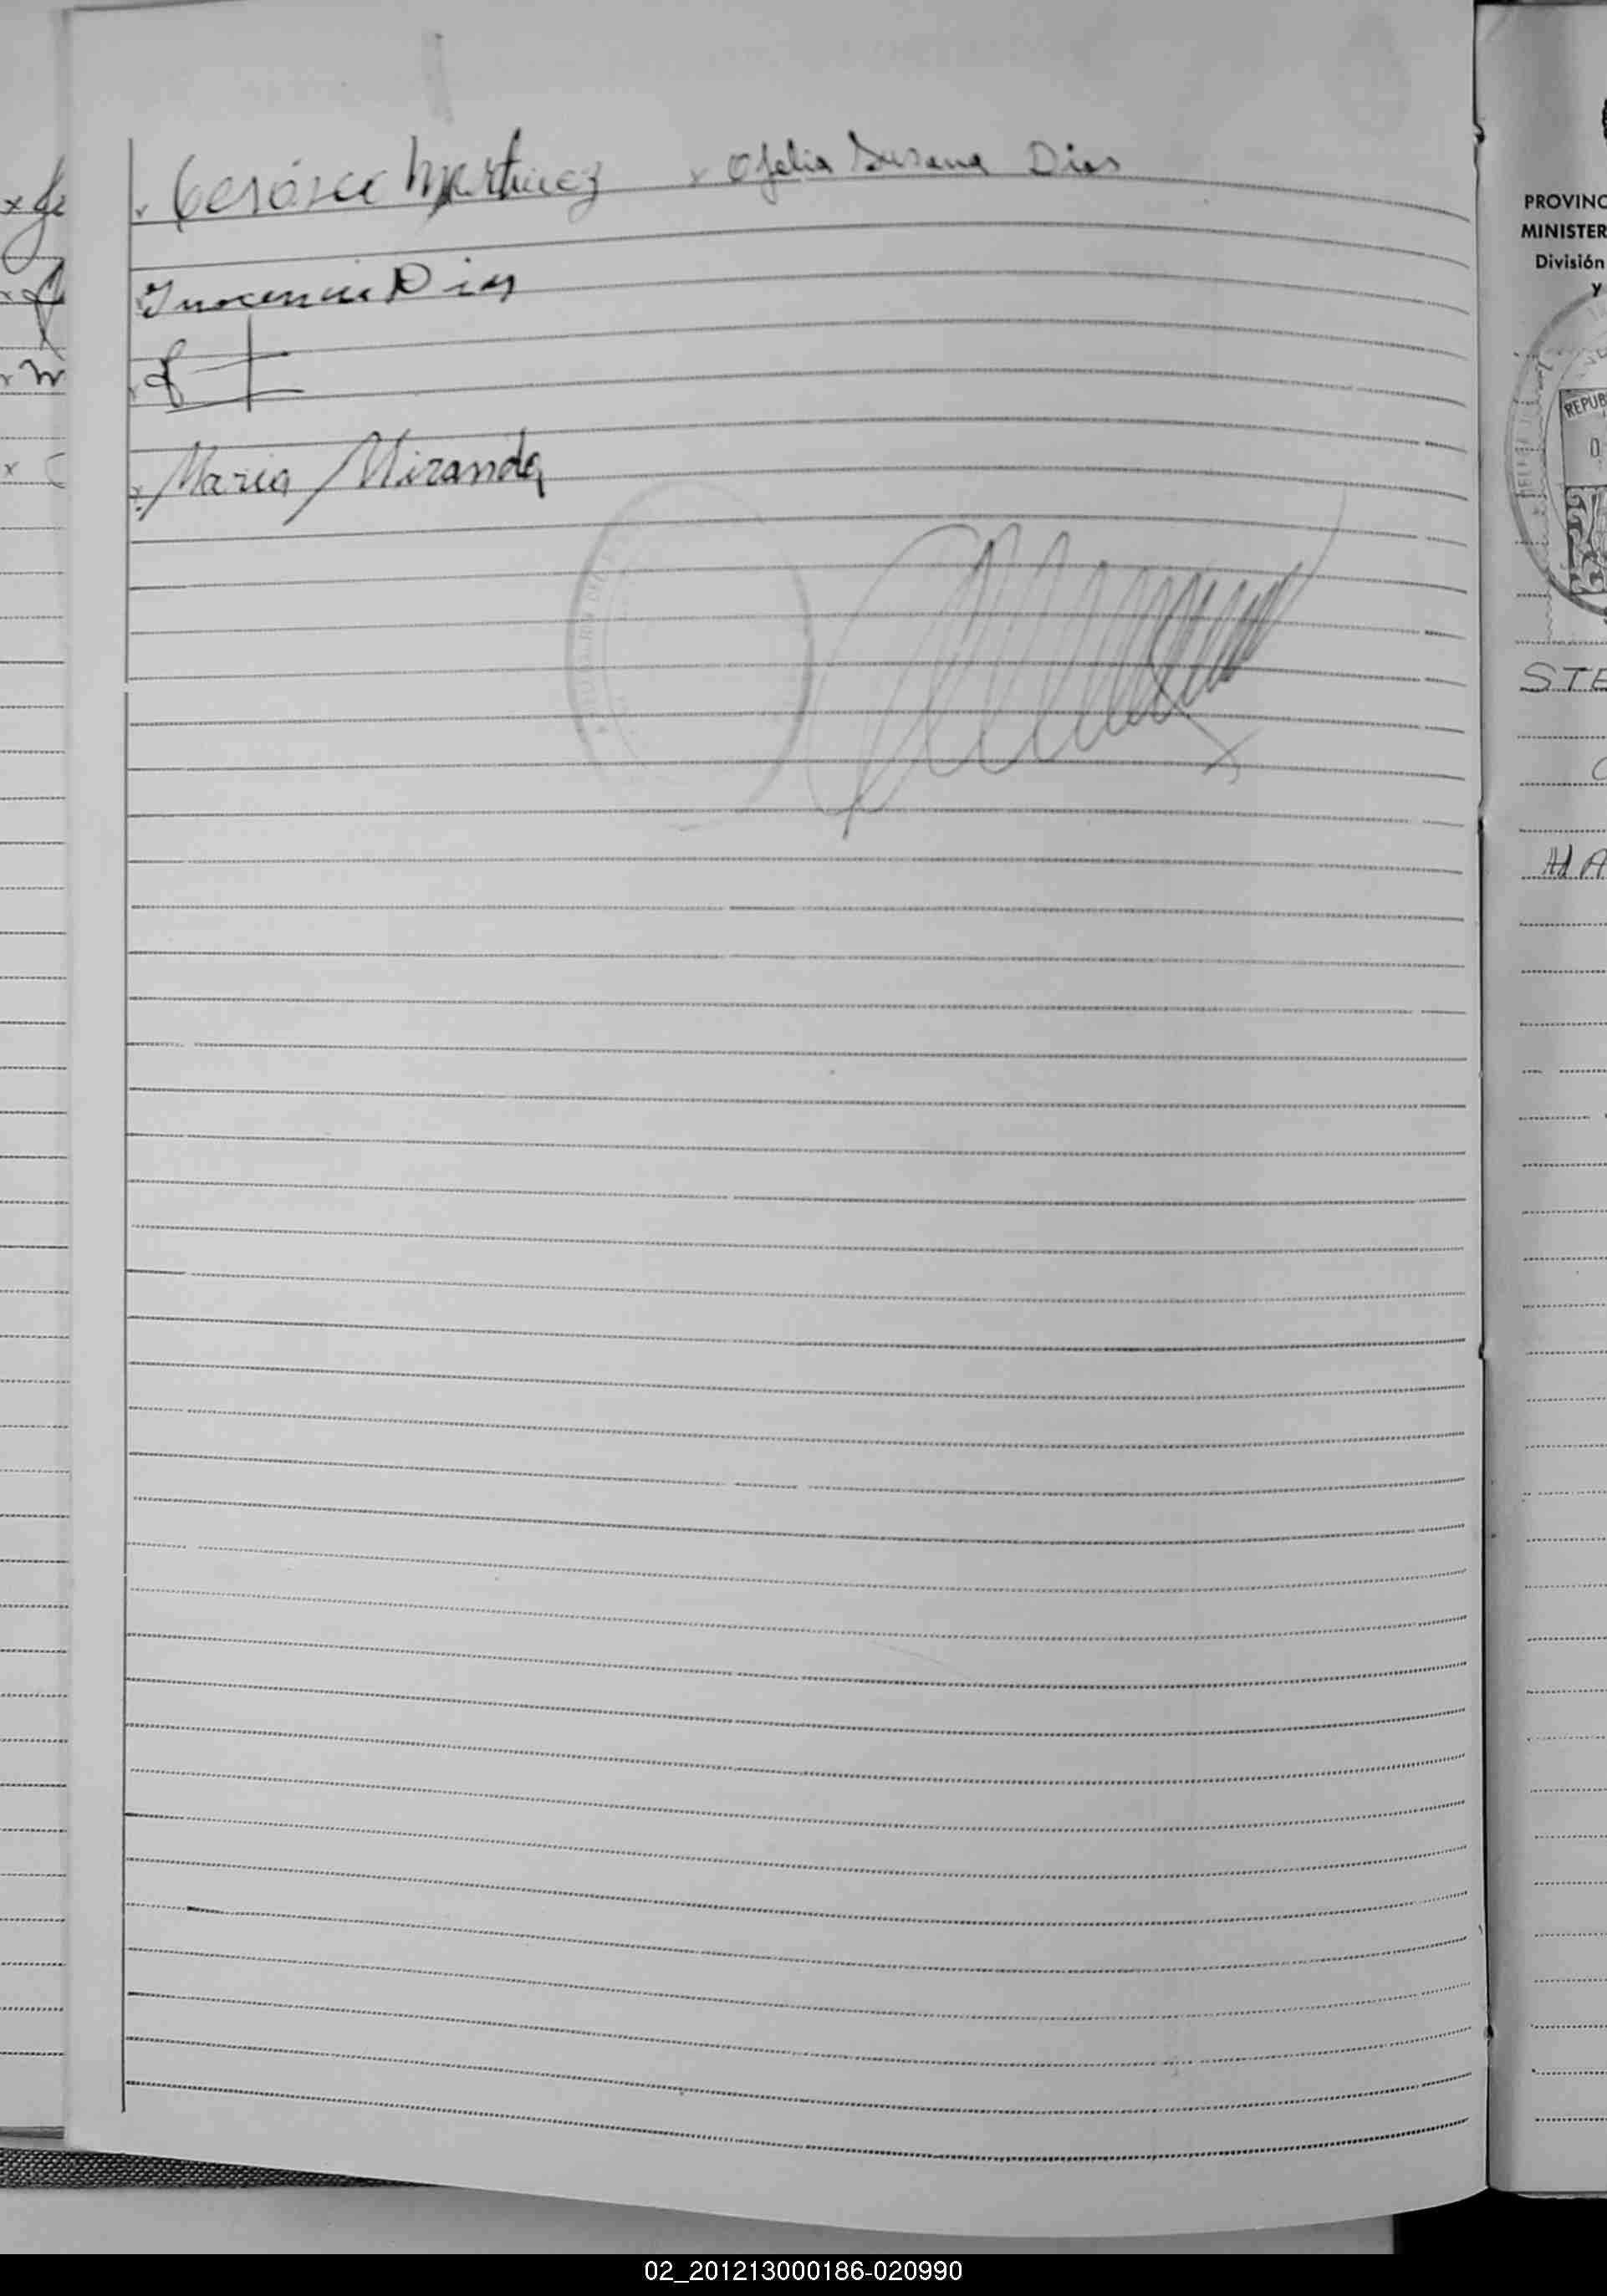 x Martinez x Ofelia Susana Dias
Inocencia Dias
x
x Maria Miranda
PROVINC
MINISTER
División
y
REPUB
STE
MA
02_201213000186-020990